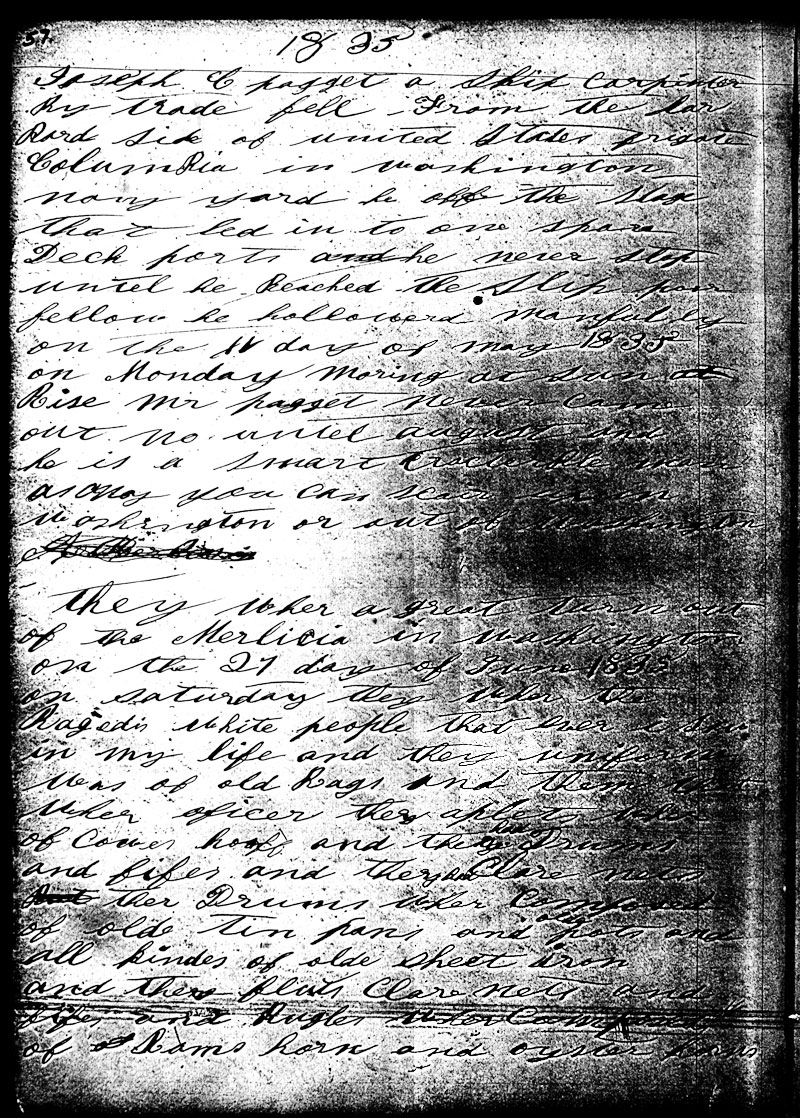 57
1835
Joseph C pagget a Ship Carpinter
By trade fell From the Lar
Bord side of united States frigate
Columbia in washington
navy yard he off the Stage
that led in to one spare
Deck ports and he never stop
untel he Reached the Slip poor
fellow he hollowerd manfulely
on the 11 day of may 1835
on Monday Moring at Sun at
Rise Mr pagget never came
out no untel august and
he is a smart man
as any you can in
washington or out of washington

they wher a great turn out
of the Merlicia in washington
on the 27 day of June 1835
on saturday they wher the
Ragedis white people that ever I saw
in my life and they uniform
was of old Rags and them that
wher oficer they aplets wher
of cowes hoof and they Drums
and fifes and they Clare nets
But ther Drums wher Composed
of olde Tin pans and old pots and
all kindes of olde sheet iron
and there fluts Clare nets and
fifes and Bugles wher Composed
of Rams horn and oyster